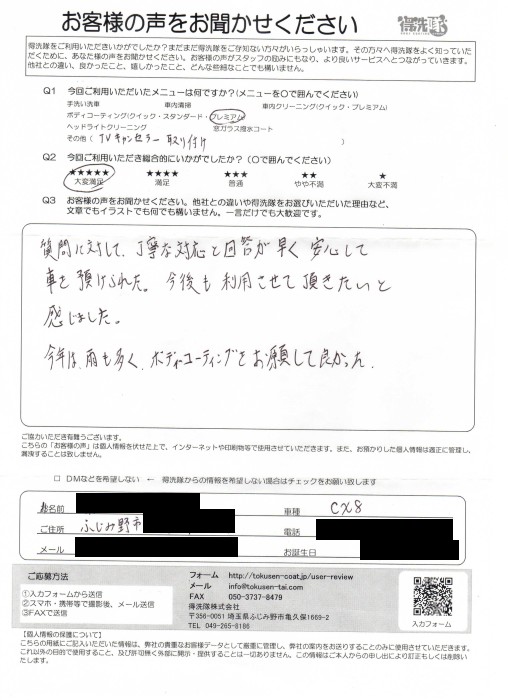 お客様の声をお聞かせください
得洗隊
得洗隊をご利用いただきいかがでしたか?まだまだ得洗隊をご存知ない方々がいらっしゃいます。その方々へ得洗隊をよく知っていた
だくために、あなた様の声をお聞かせください。お客様の声がスタッフの励みにもなり、より良いサービスへとつながっていきます。
他社との違い、良かったこと、嬉しかったこと、どんな些細なことでも構いません。
Q1 今回ご利用いただいたメニューは何ですか?(メニューを○で囲んでください)
手洗い洗車 車内清掃 車内クリーニング(クイック・プレミアム)
ボディコーティング(クイック・スタンダード・プレミアム)
ヘッドライトクリーニング 窓ガラス撥水コート
その他( TVキャンセラー 取り付け )
Q2 今回ご利用いただき総合的にいかがでしたか?(○で囲んでください)
★★★★★ ★★★★ ★★★ ★★ ★
大変満足 満足 普通 やや不満 大変不満
Q3 お客様の声をお聞かせください。他社との違いや得洗隊をお選びいただいた理由など、
文章でもイラストでも何でも構いません。一言だけでも大歓迎です。
質問に対して、丁寧な対応と回答が早く 安心して
車を預けられた。今後も利用させて頂きたいと
感じました。
今年は、雨も多く、ボディーコーティングをお願して良かった.
ご協力いただき有難うございます。
こちらの「お客様の声」は個人情報を伏せた上で、インターネットや印刷物等で使用させていただきます。また、お預かりした個人情報は適正に管理し、
漏洩することは致しません。
□ DMなどを希望しない ← 得洗隊からの情報を希望しない場合はチェックをお願い致します
お名前 車種 CX8
ご住所 ふじみ野市 電話
メール お誕生日
ご応募方法
①入力フォームから送信
②スマホ・携帯等で撮影後、メール送信
③FAXで送信
フォーム http://tokusen-coat.jp/user-review
メール info@tokusen-tai.com
FAX 050-3737-8479
得洗隊株式会社
〒356-0051 埼玉県ふじみ野市亀久保1669-2
TEL 049-265-8186
入力フォーム
【個人情報の保護について】
こちらの用紙にご記入いただいた情報は、弊社の貴重なお客様データとして厳重に管理し、弊社の案内をお送りすることのみに使用させていただきます。
これ以外の目的で使用すること、及び許可無く外部に開示・提供することは一切ありません。この情報はご本人からの申し出により訂正もしくは削除い
たします。